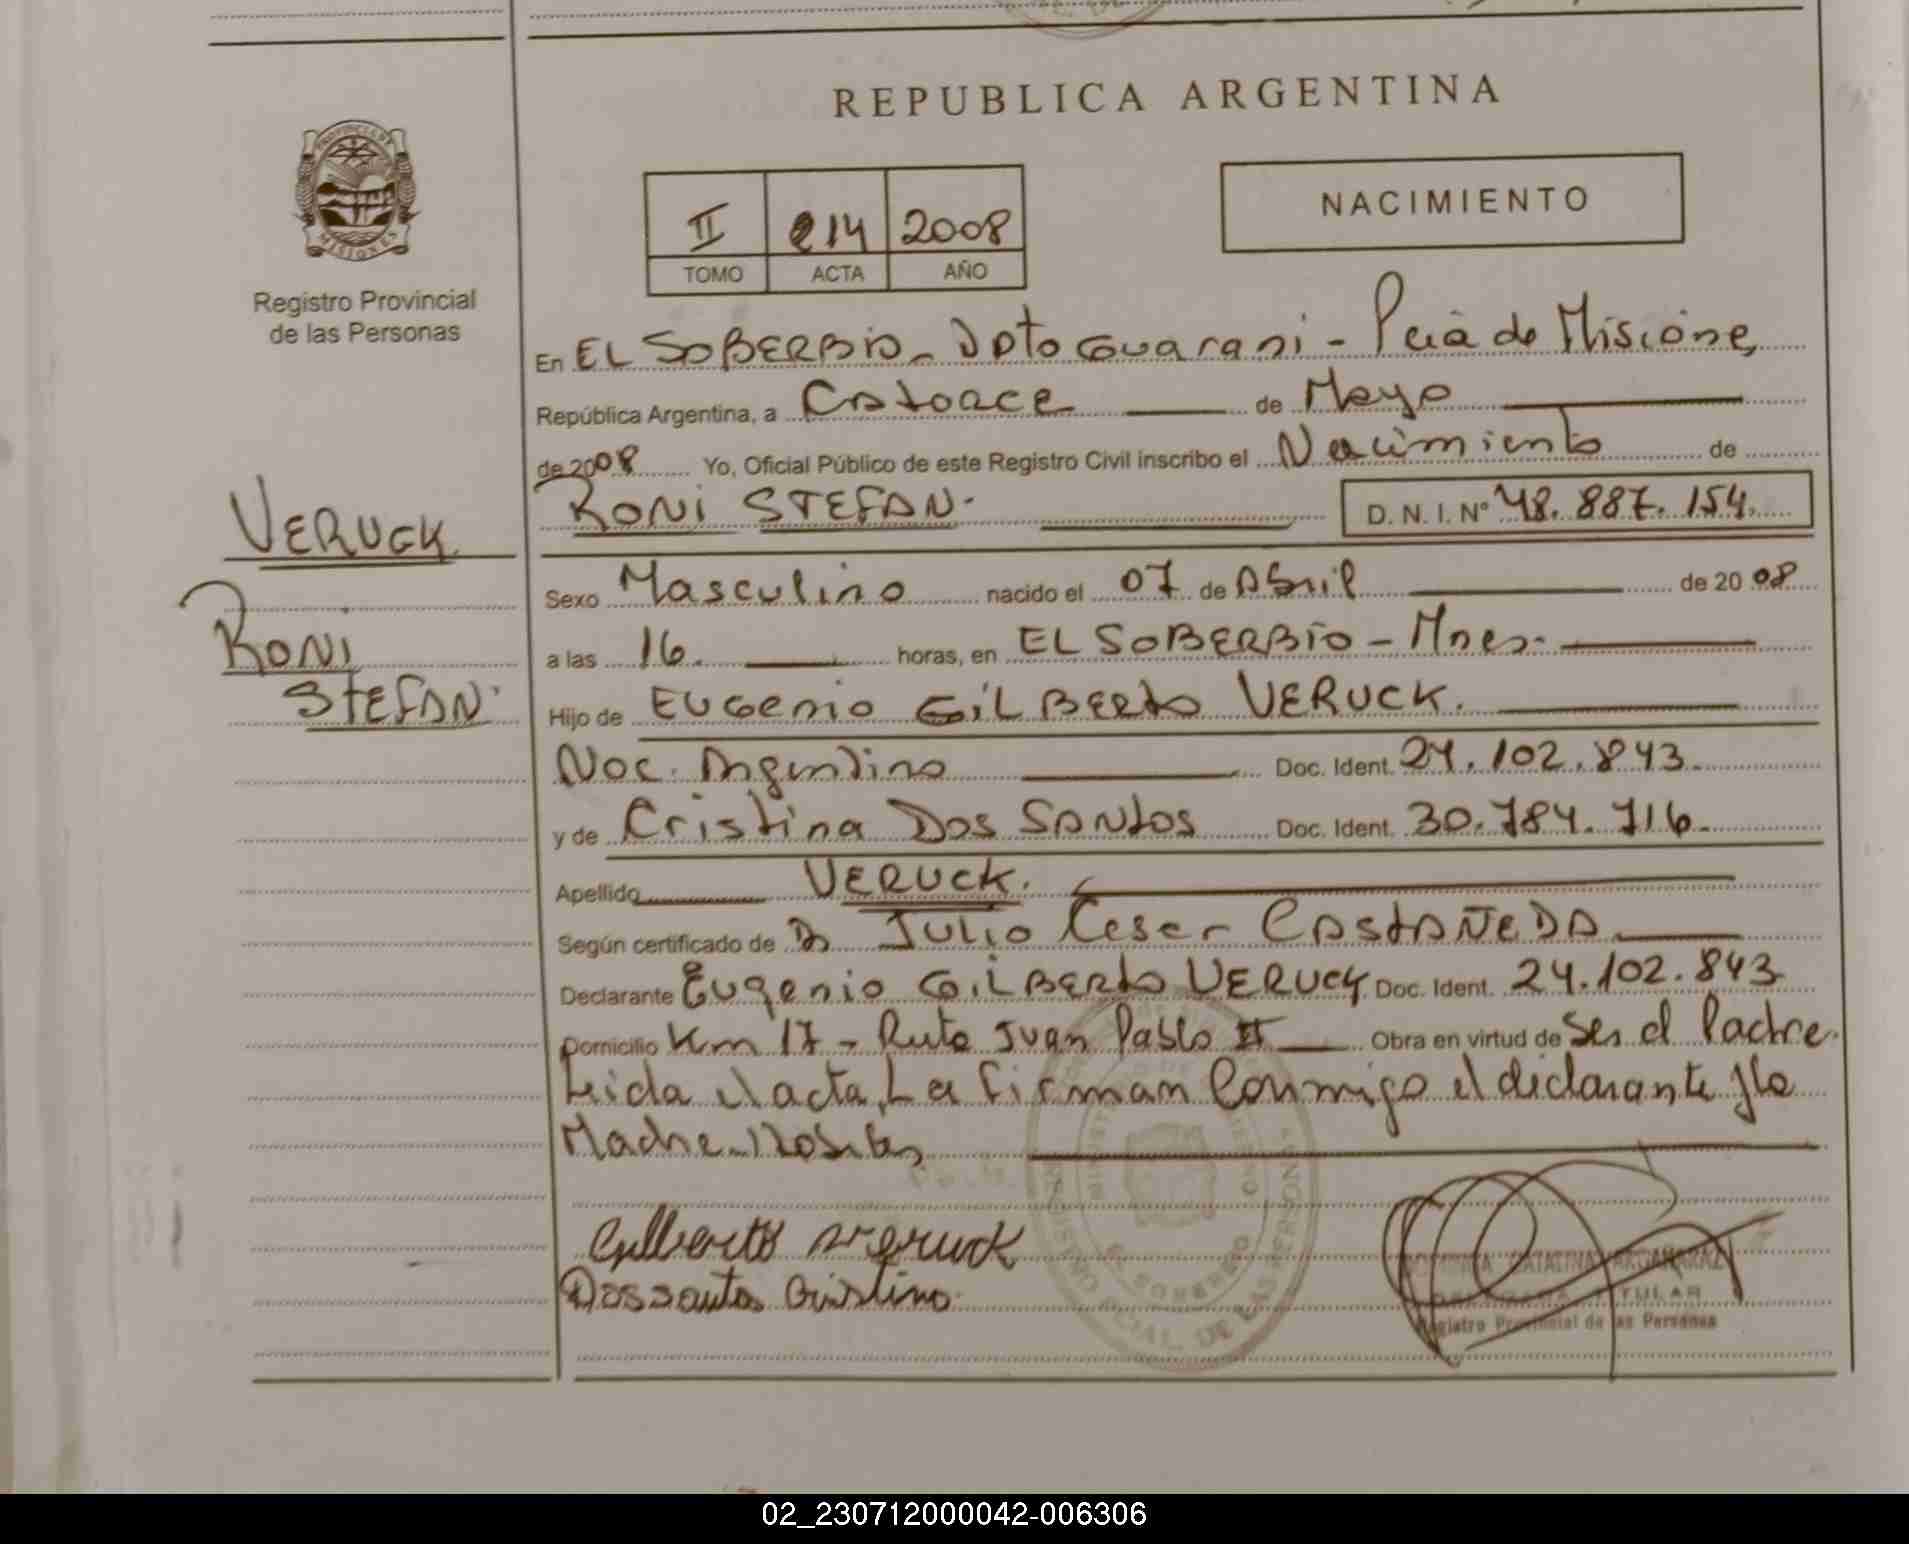 REPUBLICA ARGENTINA
PROVINCIA DE
MISIONES
Registro Provincial
de las Personas
II 214 2008
TOMO ACTA AÑO
NACIMIENTO
En EL SOBERBIO - Dpto Guarani - Pcia de Misiones
República Argentina, a Catorce de Mayo
de 2008 Yo, Oficial Público de este Registro Civil inscribo el Nacimiento de
RONI STEFAN. D. N. I. Nº 48.887.154.
VERUCK
RONI
STEFAN.
Sexo Masculino nacido el 07 de Abril de 2008
a las 16. horas, en EL SOBERBIO - Mnes.
Hijo de EUGENIO GILBERTO VERUCK.
Nac. Argentino Doc. Ident. 24.102.843.
y de Cristina Dos Santos Doc. Ident. 30.784.716.
Apellido VERUCK.
Según certificado de Dr JULIO Cesar CASTAÑEDA
Declarante Eugenio GILBERTO VERUCK Doc. Ident. 24.102.843
Domicilio Km 17 - Ruta Juan Pablo II Obra en virtud de Ser el Padre.
Leida el acta, La firman Conmigo el declarante y la
Madre
Gilberto Veruck
Dossantos Cristina
EL SOBERBIO
REGISTRO PCIAL. DE LAS PERSONAS
CATALINA
TITULAR
Registro Provincial de las Personas
02_230712000042-006306